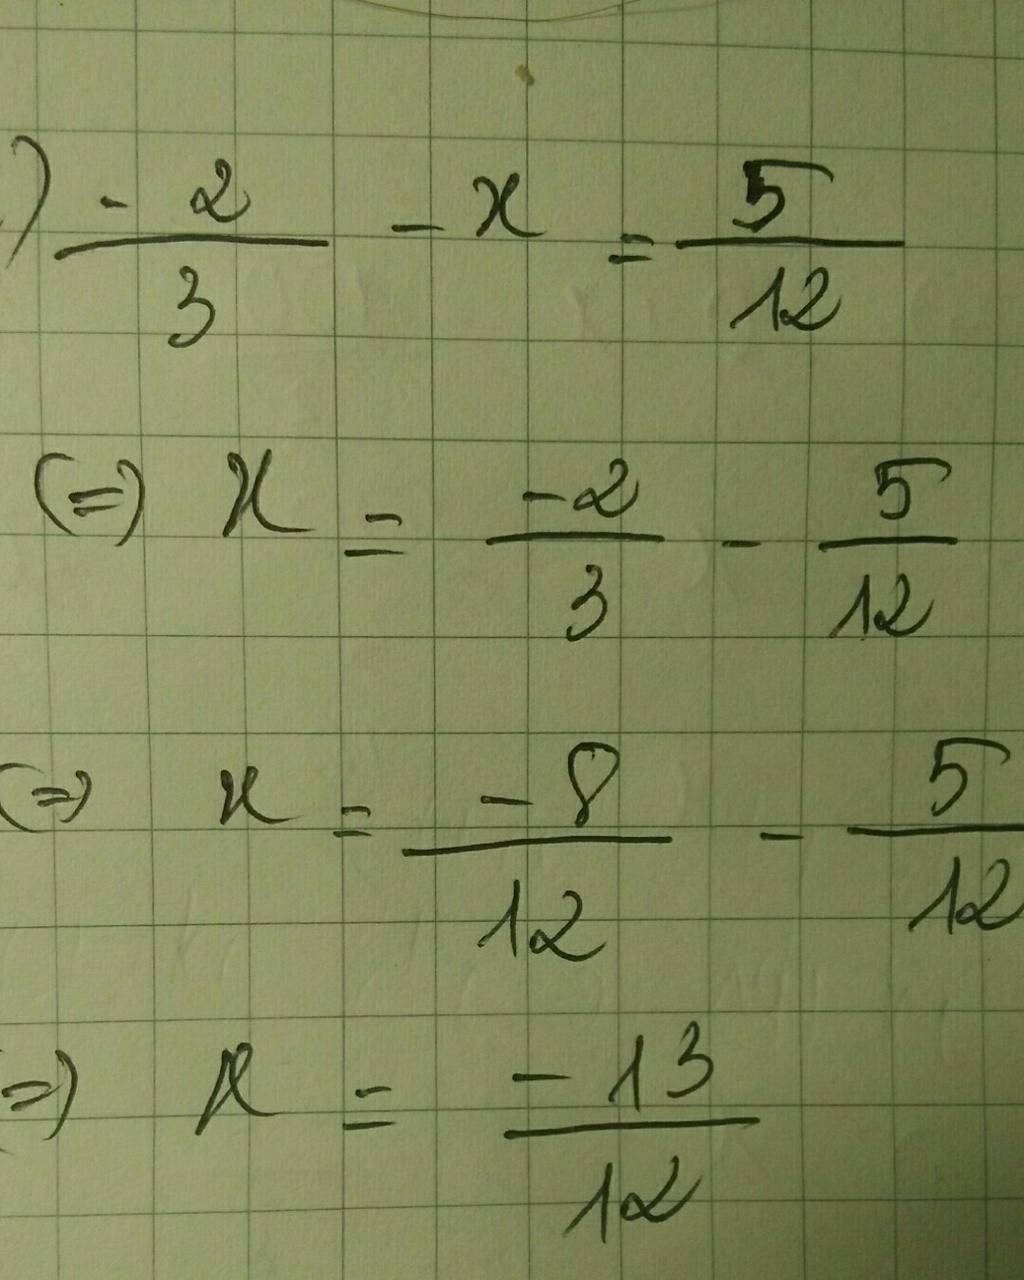 ) -2/3 - x = 5/12
(=) x = -2/3 - 5/12
(=) x = -8/12 - 5/12
=) x = -13/12